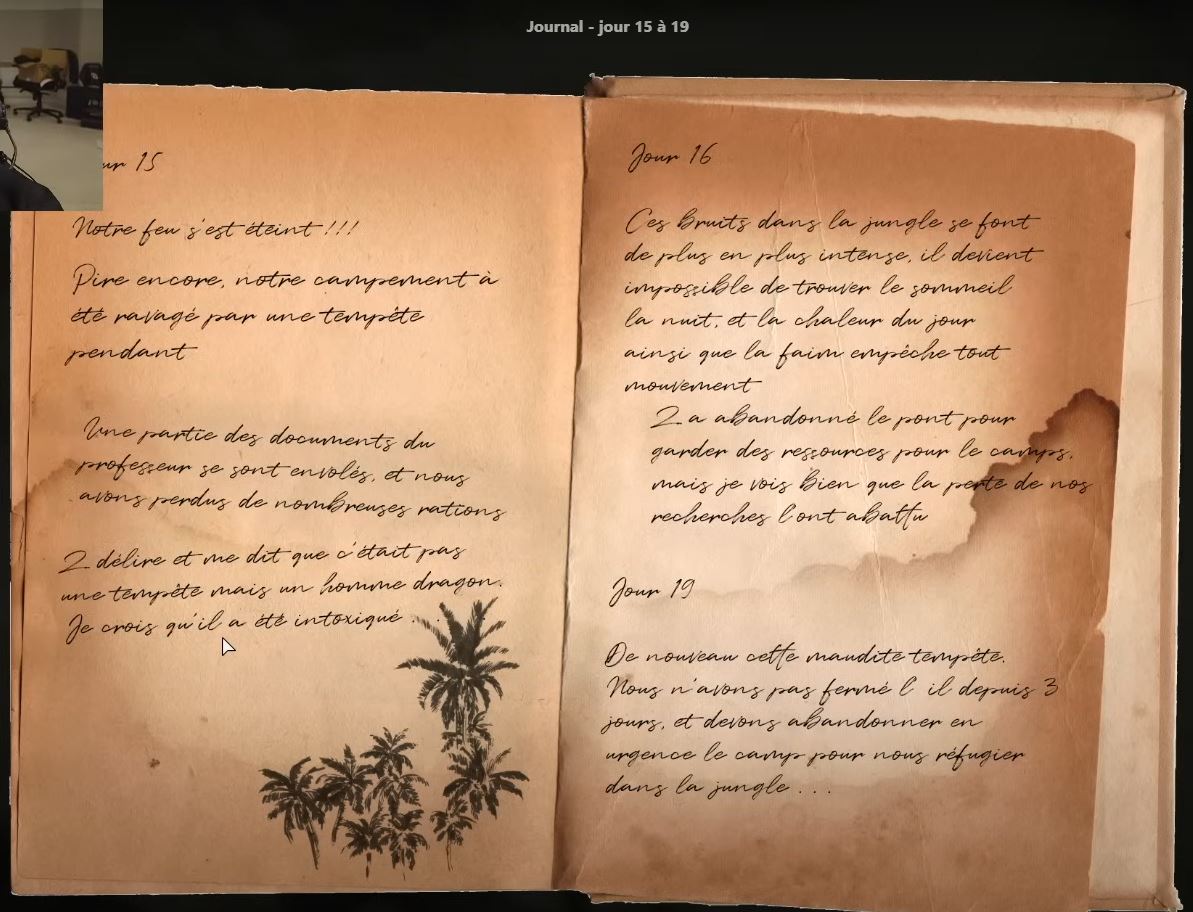 Journal - jour 15 à 19
ur 15
Notre feu s'est éteint !!!
Pire encore, notre campement à
été ravagé par une tempête
pendant
Une partie des documents du
professeur se sont envolés, et nous
avons perdus de nombreuses rations
Z délire et me dit que c'était pas
une tempête mais un homme dragon.
Je crois qu'il a été intoxiqué . . .
Jour 16
Ces bruits dans la jungle se font
de plus en plus intense, il devient
impossible de trouver le sommeil
la nuit, et la chaleur du jour
ainsi que la faim empêche tout
mouvement
Z a abandonné le pont pour
garder des ressources pour le camps,
mais je vois bien que la perte de nos
recherches l'ont abattu
Jour 19
De nouveau cette maudite tempête.
Nous n'avons pas fermé l' il depuis 3
jours, et devons abandonner en
urgence le camp pour nous réfugier
dans la jungle . . .